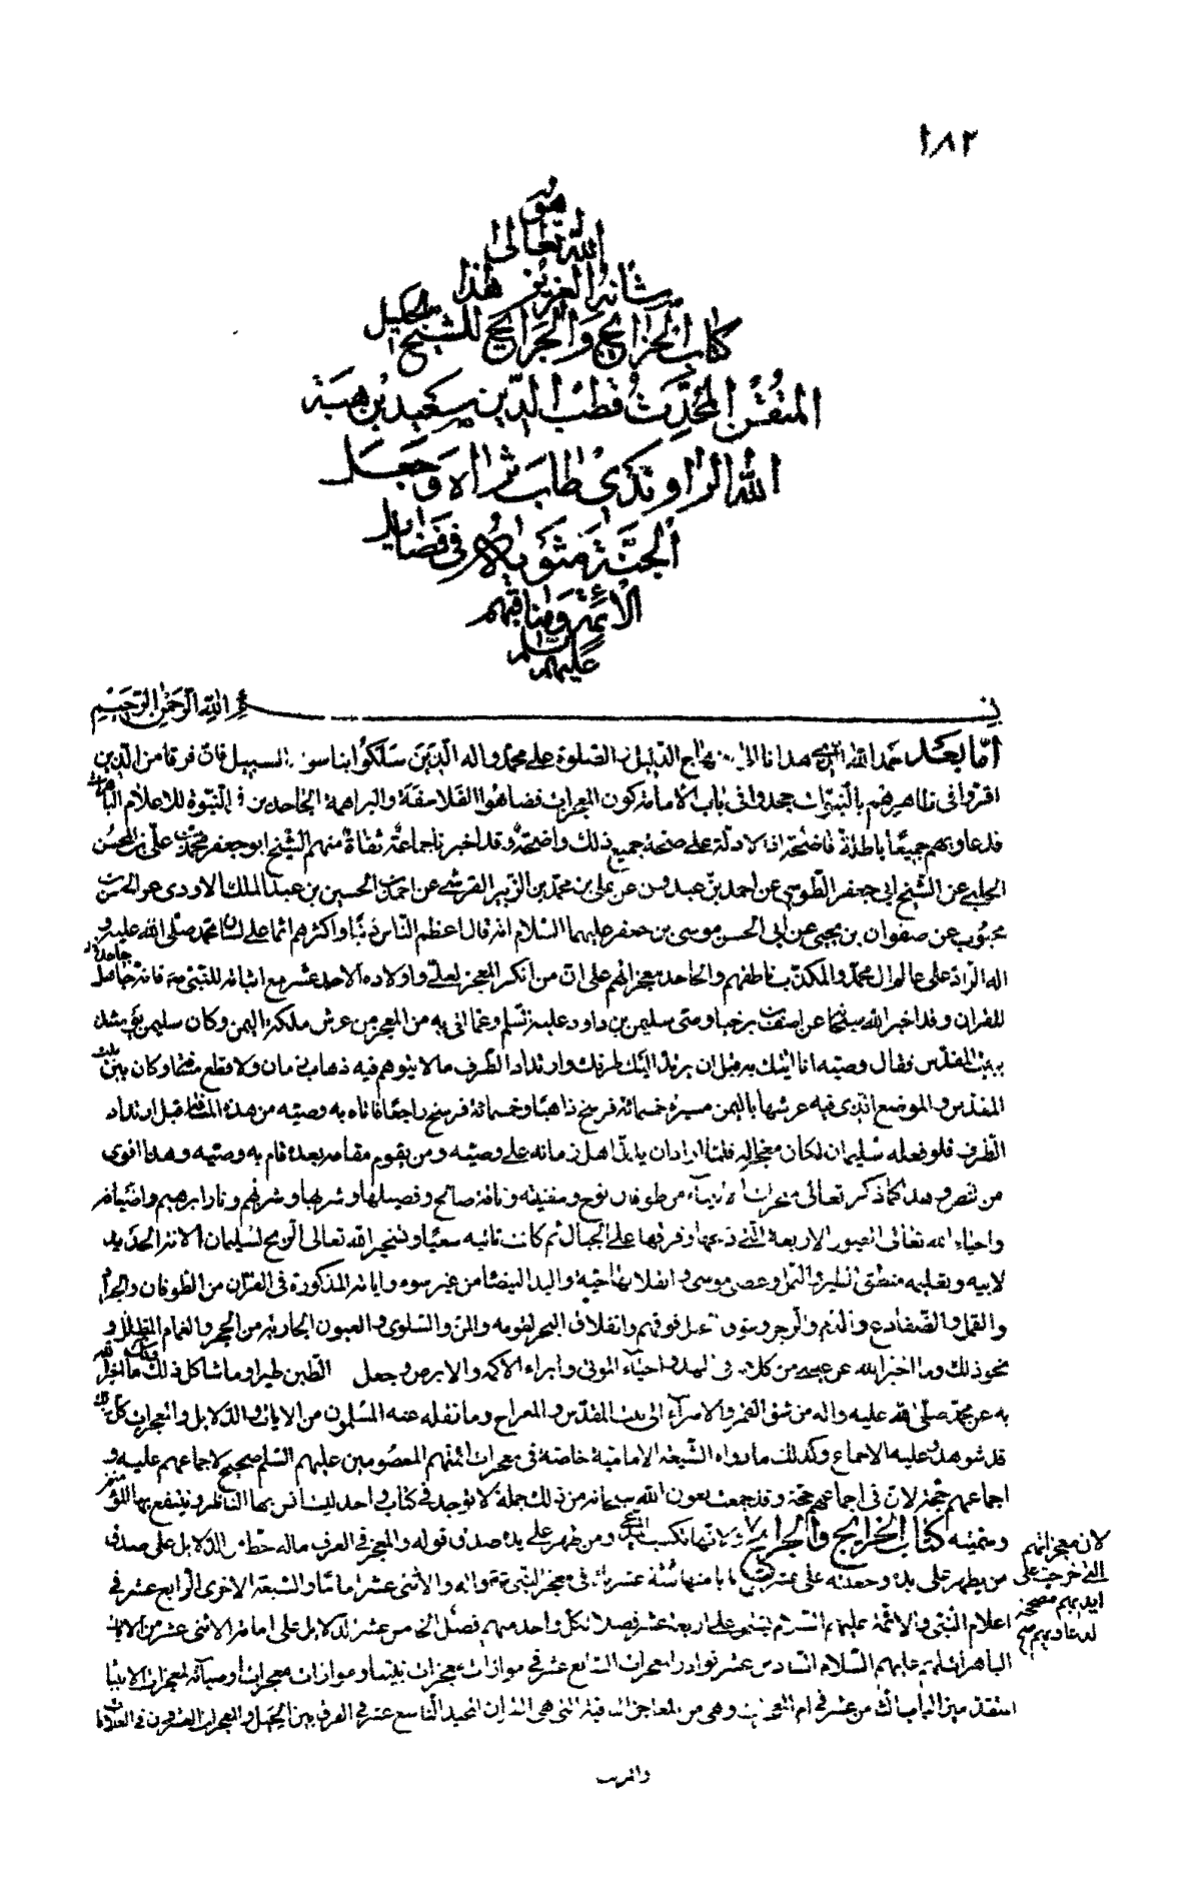 ١٨٢
هو
الله تعالى
شانه العزيز هذا
كتاب الخرايج والجرايح للشيخ الجليل
المتفنن المحدث قطب الدين سعيد بن هبة
الله الراوندي طاب ثراه وجعل
الجنة مثواه في فضايل
الائمة ومناقبهم
عليهم السلام
بسم الله الرحمن الرحيم
اما بعد حمد الله الذي هدانا الى منهاج الدليل والصلوة على محمد واله الذين سلكوا بنا سواء السبيل فان فرقا من الذين
اقروا في ظاهرهم بالنبوات جحدوا في باب الامامة كون المعجزات فضاهوا الفلاسفة والبراهمة الجاحدين في النبوة للاعلام الباهرات
فدعاويهم جميعا باطلة فاضحة اذ الادلة على صحة جميع ذلك واضحة وقد اخبرنا جماعة ثقاة منهم الشيخ ابو جعفر محمد بن علي بن المحسن
الحلبي عن الشيخ ابي جعفر الطوسي عن احمد بن عبدون عن علي بن محمد بن الزبير القرشي عن احمد بن الحسين بن عبد الملك الاودي عن الحسن بن
محبوب عن صفوان بن يحيى عن ابي الحسن موسى بن جعفر عليهما السلام انه قال اعظم الناس ذنبا واكثرهم اثما على لسان محمد صلى الله عليه و
اله الراد على عالم ال محمد والمكذب ناطقهم والجاحد معجزاتهم على ان من انكر المعجز لعلي واولاده الاحد عشر مع اثباته للنبي ص فانه جاهل
جاحد
للقران وقد اخبر الله سبحانه عن اصف بن برخيا وصي سليمن بن داود عليه السلم وعما اتى به من المعجز من عرش ملكة اليمن وكان سليمن يومئذ
ببيت المقدس فقال وصيه انا اتيك به قبل ان يرتد اليك طرفك وارتداد الطرف ما لا يتوهم فيه ذهاب زمان ولا قطع مسافة وكان بين بيت
المقدس والموضع الذي فيه عرشها باليمن مسيرة خمسمائة فرسخ ذاهبا وخمسمائة فرسخ راجعا فاتاه به وصيه من هذه المسافة قبل ارتداد
الطرف فلو فعله سليمان لكان معجزا له فلما اراد ان يدل اهل زمانه على وصيه ومن يقوم مقامه بعده قام به وصيه وهذا اقوى
من النص وهذا كما ذكر تعالى معجزات الانبياء من طوفان نوح وسفينته وناقة صالح وفصيلها وشربها وشربهم ونار ابرهيم واضيافه
واحياء الله تعالى الطيور الاربعة التي ذبحها وفرقها على الجبال ثم كانت تاتيه سعيا وتسخير الله تعالى الريح لسليمان والانة الحديد
لابيه وتعليمه منطق الطير والنمل وعصى موسى وانقلابها حية واليد البيضا من غير سوء واياته المذكورة في القران من الطوفان والجراد
والقمل والضفادع والدم والرجز ونتوق الجبل فوقهم وانفلاق البحر لقومه والمن والسلوى والعيون الجارية من الحجر والغمام المظلل و
نحو ذلك وما اخبر الله عن عيسى من كلامه في المهد واحياء الموتى وابراء الاكمه والابرص وجعل الطين طيرا وما شاكل ذلك وما اخبر الله
به عن محمد صلى الله عليه واله من شق القمر والاسراء الى بيت المقدس والمعراج وما نقله عنه المسلمون من الايات والدلايل والمعجزات كل ذلك
قد شوهد وعليه الاجماع وكذلك ما رواه الشيعة الامامية خاصة في معجزات ائمتهم المعصومين عليهم السلم صحيح لاجماعهم عليه و
اجماعهم حجة لان في اجماعهم حجة وقد جمعت بعون الله سبحانه من ذلك جملة لا توجد في كتاب واحد ليستانس بها الناظر وينتفع بها المؤمن
وسميته كتاب الخرايج والجرايح لانها تكسب المدعي ومن ظهر على يده صدق قوله والمعجز في العرف ماله حظ من الدلايل على صدق
لان معجزاتهم
التي خرجت على
ايديهم مصححة
لدعاويهم
من يظهر على يده وجعلته على عشرين بابا منها ستة عشر بابا في معجز النبي واله والاثنى عشر اماما والسبعة الاخرى الرابع عشر في
اعلام النبي والائمة عليهم السلم يشتمل على اربعة عشر فصلا لكل واحد منهم فصل الخامس عشر الدلايل على امامة الاثنى عشر من الايات
الباهرات لهم عليهم السلام السادس عشر نوادر المعجزات السابع عشر في موازاة معجزات نبينا وموازات معجزات اوصيائه لمعجزات الانبيا
المتقدمين الباب الثامن عشر في ام المعجزات وهي من المعاجز الباقية التي هي القران المجيد التاسع عشر في الفرق بين الحيل والمعجزات العشرون في العلامات
والمراتب